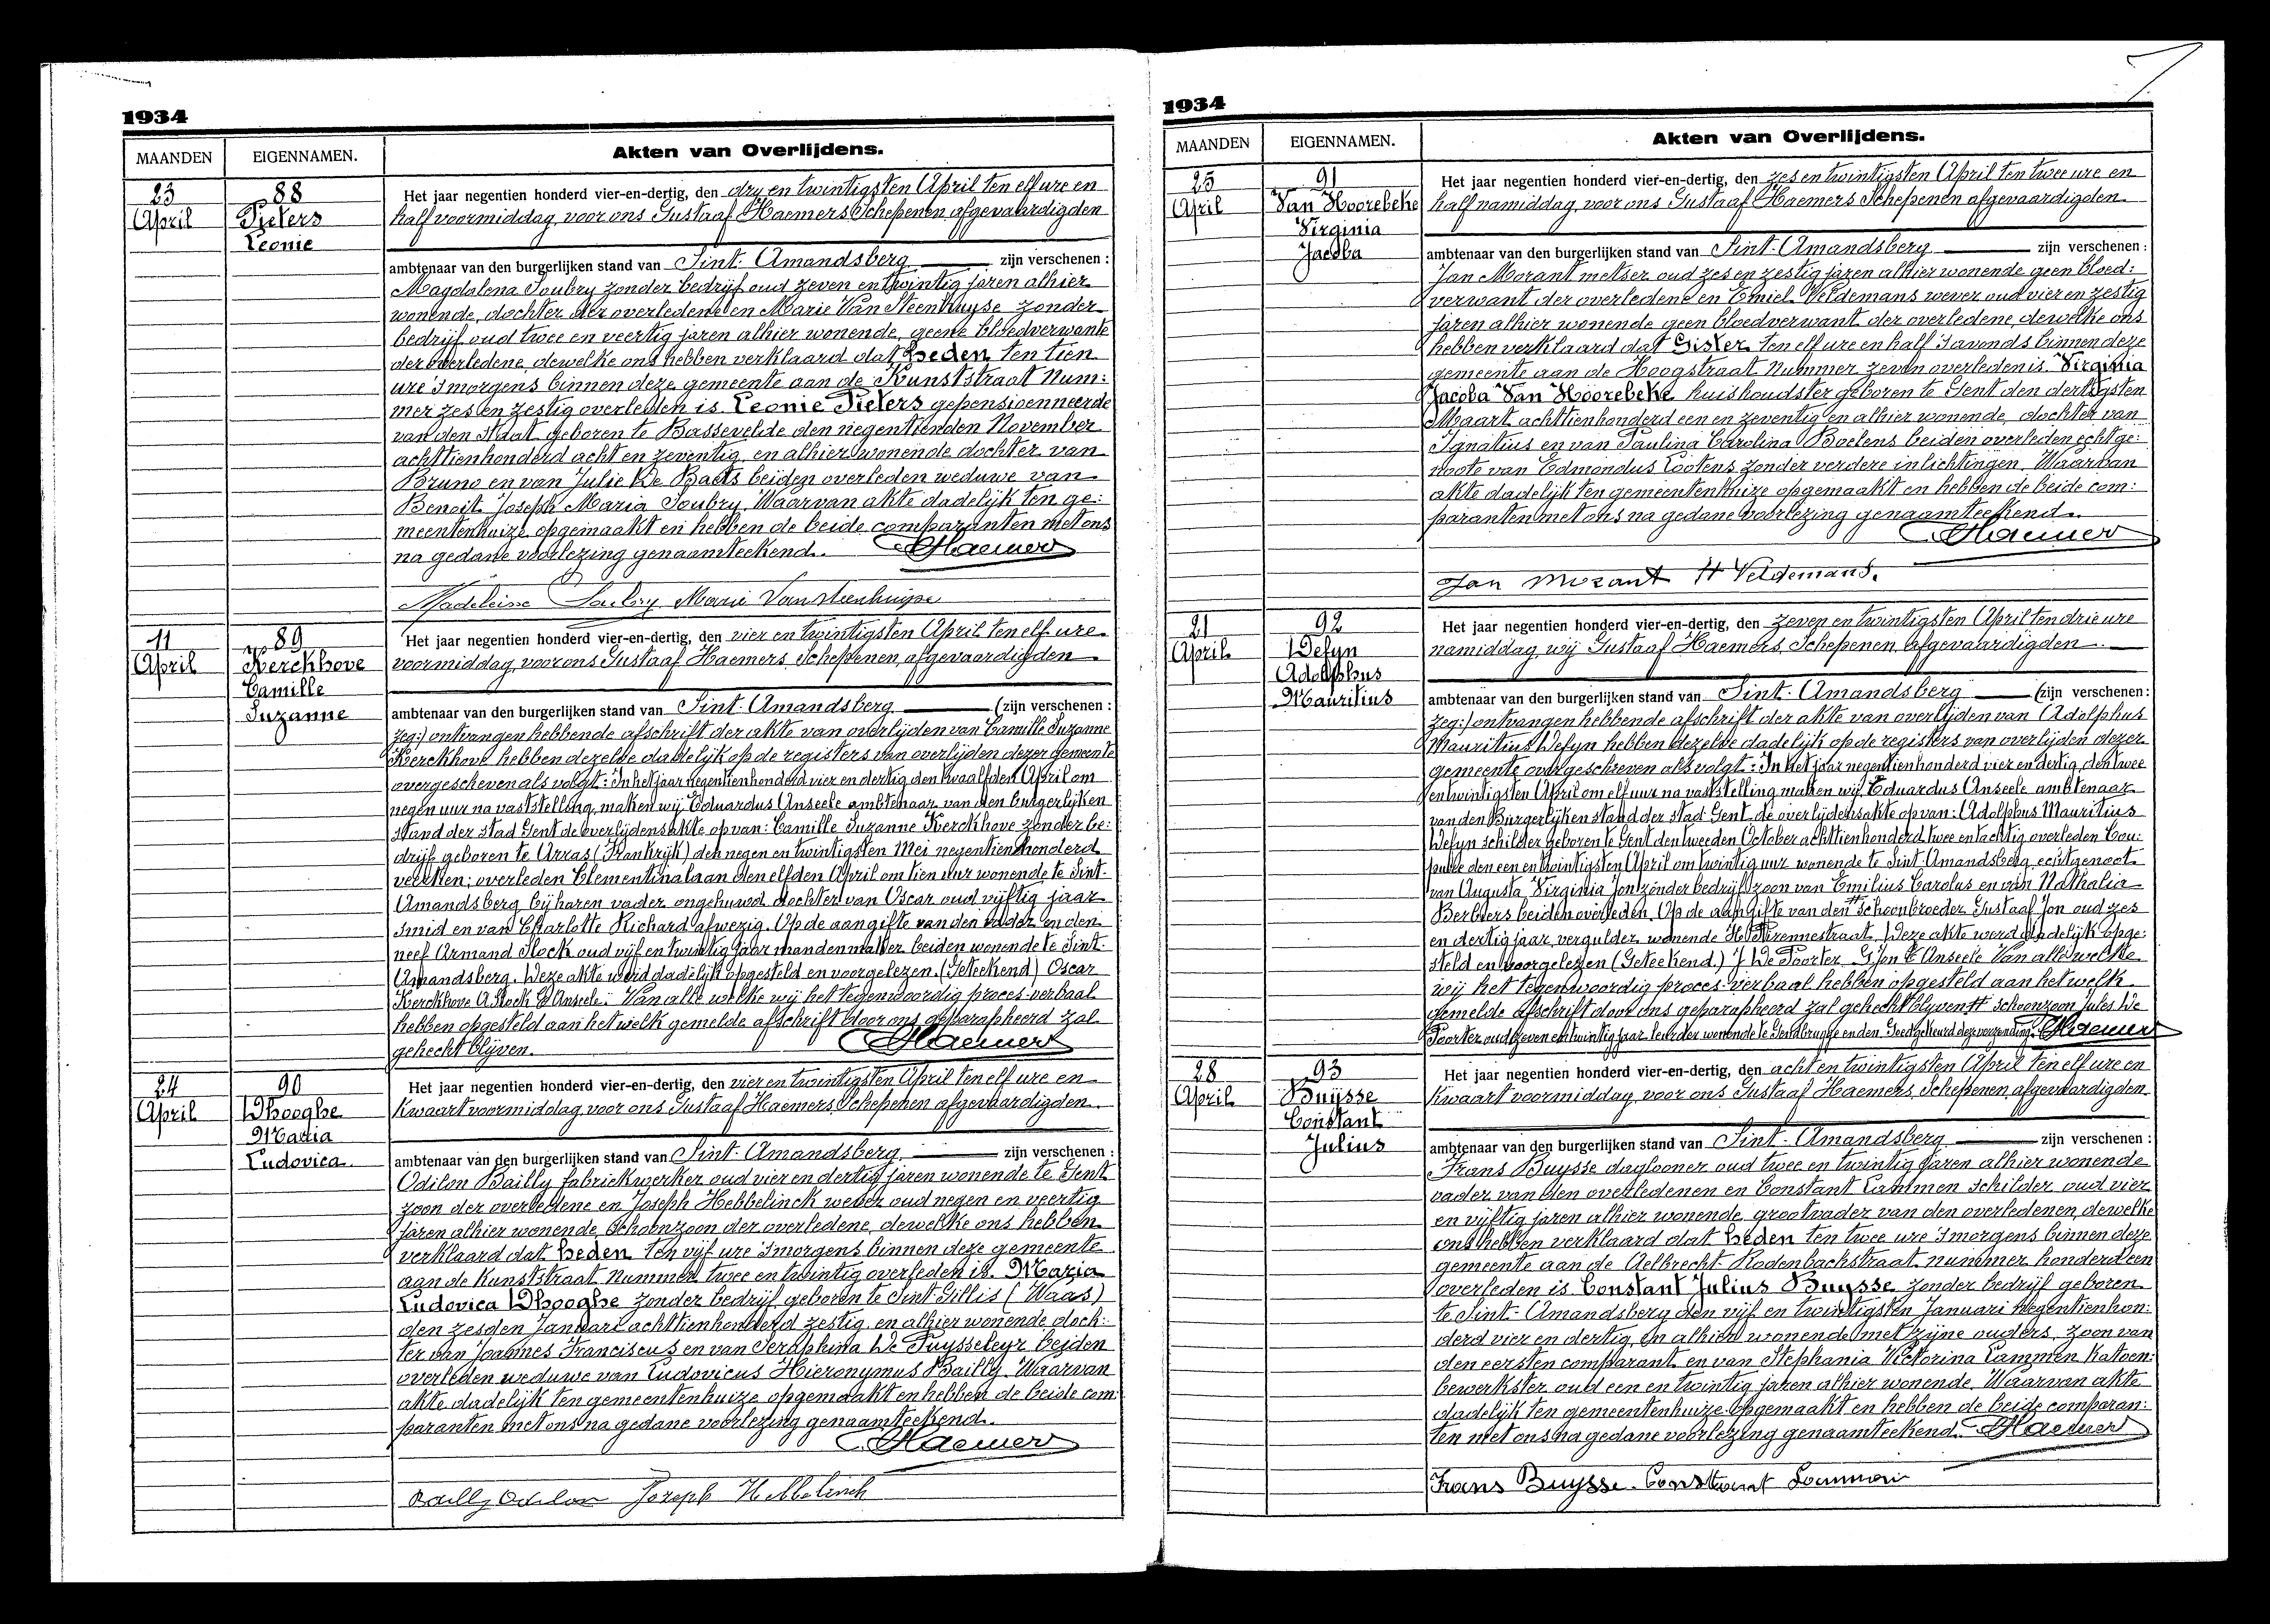 1934
MAANDEN
EIGENNAMEN.
Akten van Overlijdens.
23
April
88
Pieters
Leonie
Het jaar negentien honderd vier-en-dertig, den dry en twintigsten April ten elf ure en
half voormiddag, voor ons Gustaaf Haemers Schepenen afgevaardigden
ambtenaar van den burgerlijken stand van Sint-Amandsberg zijn verschenen :
Magdalena Soubry zonder bedrijf oud zeven en twintig jaren alhier
wonende, dochter der overledene en Marie Van Steenhuyse zonder
bedrijf oud twee en veertig jaren alhier wonende, geene bloedverwante
der overledene, dewelke ons hebben verklaard dat heden ten tien
ure 's morgens binnen deze gemeente aan de Kunststraat Num:
mer zes en zestig overleden is Leonie Pieters gepensioenneerde
van den Staat geboren te Bassevelde den negentienden November
achttienhonderd acht en zeventig, en alhier wonende dochter van
Bruno en van Julie De Baets beiden overleden weduwe van
Benoit Joseph Maria Soubry. Waarvan akte dadelijk ten ge:
meentenhuize opgemaakt en hebben de beide comparanten met ons
na gedane voorlezing genaamteekend. Haemers
Madeleine Soubry Marie Vansteenhuyse
11
April
89
Kerckhove
Camille
Suzanne
Het jaar negentien honderd vier-en-dertig, den vier en twintigsten April ten elf ure
voormiddag, voor ons Gustaaf Haemers Schepenen afgevaardigden
ambtenaar van den burgerlijken stand van Sint-Amandsberg (zijn verschenen :
zeg:) ontvangen hebbende afschrift der akte van overlijden van Camille Suzanne
Kerckhove hebben dezelve dadelijk op de registers van overlijden dezer gemeente
overgescheven als volgt: In het jaar negentienhonderd vier en dertig den twaalfden April om
negen uur na vaststelling, maken wij Eduardus Anseele ambtenaar van den burgerlijken
stand der stad Gent de overlijdensakte op van: Camille Suzanne Kerckhove zonder be:
drijf geboren te Arras (Frankrijk) den negen en twintigsten Mei negentienhonderd
veertien; overleden Clementinalaan den elfden April om tien uur wonende te Sint-
Amandsberg bij haren vader ongehuwd dochter van Oscar oud vijftig jaar
smid en van Charlotte Richard afwezig. Op de aangifte van den vader en den
neef Armand Stock oud vijf en twintig jaar mandenmaker beiden wonende te Sint-
Amandsberg. Deze akte werd dadelijk opgesteld en voorgelezen. (Geteekend) Oscar
Kerckhove A. Stock Ed Anseele. Van alle welke wij het tegenwoordig proces-verbaal
hebben opgesteld aan hetwelk gemelde afschrift door ons geparapheerd zal
gehecht blijven. Haemers
24
April
90
Dhooghe
Maria
Ludovica
Het jaar negentien honderd vier-en-dertig, den vier en twintigsten April ten elf ure en
kwaart voormiddag voor ons Gustaaf Haemers Schepenen afgevaardigden
ambtenaar van den burgerlijken stand van Sint-Amandsberg zijn verschenen :
Odilon Bailly fabriekwerker oud vier en dertig jaren wonende te Gent
zoon der overledene en Joseph Hebbelinck wever oud negen en veertig
jaren alhier wonende, schoonzoon der overledene, dewelke ons hebben
verklaard dat heden ten vijf ure 's morgens binnen deze gemeente
aan de Kunststraat nummer twee en twintig overleden is Maria
Ludovica Dhooghe zonder bedrijf geboren te Sint-Gillis (Waas)
den zesden Januari achttienhonderd zestig en alhier wonende doch:
ter van Joannes Franciscus en van Seraphina De Puysseleyr beiden
overleden weduwe van Ludovicus Hieronymus Bailly. Waarvan
akte dadelijk ten gemeentenhuize opgemaakt en hebben de beide com:
paranten met ons na gedane voorlezing genaamteekend.
Haemers
Bailly Odilon Joseph Hebbelinck
1934
MAANDEN
EIGENNAMEN.
Akten van Overlijdens.
25
April
91
Van Hoorebeke
Virginia
Jacoba
Het jaar negentien honderd vier-en-dertig, den zes en twintigsten April ten twee ure en
half namiddag, voor ons Gustaaf Haemers Schepenen afgevaardigden
ambtenaar van den burgerlijken stand van Sint-Amandsberg zijn verschenen :
Jan Morant metser oud zes en zestig jaren alhier wonende geen bloed:
verwant der overledene en Emiel Veldemans wever oud vier en zestig
jaren alhier wonende geen bloedverwant der overledene, dewelke ons
hebben verklaard dat Gister ten elf ure en half 's avonds binnen deze
gemeente aan de Hoogstraat nummer zeven overleden is Virginia
Jacoba Van Hoorebeke huishoudster geboren te Gent den dertigsten
Maart achttienhonderd een en zeventig en alhier wonende, dochter van
Ignatius en van Paulina Carolina Boelens beiden overleden echtge:
noote van Edmondus Lootens zonder verdere inlichtingen. Waarvan
akte dadelijk ten gemeentenhuize opgemaakt en hebben de beide com:
paranten met ons na gedane voorlezing genaamteekend.
Haemers
Jan Morant H Veldemans.
21
April
92
Defyn
Adolphus
Mauritius
Het jaar negentien honderd vier-en-dertig, den zeven en twintigsten April ten drie ure
namiddag, wij Gustaaf Haemers, Schepenen afgevaardigden
ambtenaar van den burgerlijken stand van Sint-Amandsberg (zijn verschenen :
zeg:) ontvangen hebbende afschrift der akte van overlijden van Adolphus
Mauritius Defyn hebben dezelve dadelijk op de registers van overlijden dezer
gemeente overgeschreven als volgt: In het jaar negentienhonderd vier en dertig, den twee
en twintigsten April om elf uur na vaststelling maken wij Eduardus Anseele ambtenaar
van den Burgerlijken stand der stad Gent de overlijdensakte op van: Adolphus Mauritius
Defyn schilder geboren te Gent den tweeden October achttienhonderd twee en tachtig overleden Cou:
pure den een en twintigsten April om twintig uur wonende te Sint-Amandsberg echtgenoot
van Augusta Virginia Jon zonder bedrijf zoon van Emilius Carolus en van Nathalia
Berbers beiden overleden. Op de aangifte van den # schoonbroeder Gustaaf Jon oud zes
en dertig jaar, vergulder wonende H. Pirennestraat. Deze akte werd dadelijk opge:
steld en voorgelezen (Geteekend) J De Poorter G Jon E Anseele Van alle welke
wij het tegenwoordig proces-verbaal hebben opgesteld aan het welk
gemelde afschrift door ons geparapheerd zal gehecht blijven # schoonzoon Jules De
Poorter oud zeven en twintig jaar leurder wonende te Gendbrugge en den. Goedgekeurd deze verzending. Haemers
28
April
93
Buysse
Constant
Julius
Het jaar negentien honderd vier-en-dertig, den acht en twintigsten April ten elf ure en
kwaart voormiddag, voor ons Gustaaf Haemers, Schepenen afgevaardigden
ambtenaar van den burgerlijken stand van Sint-Amandsberg zijn verschenen :
Frans Buysse daglooner oud twee en twintig jaren alhier wonende
vader van den overledenen en Constant Lammen schilder oud vier
en vijftig jaren alhier wonende, grootvader van den overledenen, dewelke
ons hebben verklaard dat heden ten twee ure 's morgens binnen deze
gemeente aan de Aelbrecht-Rodenbachstraat nummer honderd een
overleden is Constant Julius Buysse zonder bedrijf geboren
te Sint-Amandsberg den vijf en twintigsten Januari negentienhon:
derd vier en dertig, en alhier wonende met zijne ouders, zoon van
den eersten comparant en van Stephania Victorina Lammen katoen:
bewerkster oud een en twintig jaren alhier wonende. Waarvan akte
dadelijk ten gemeentenhuize opgemaakt en hebben de beide comparan:
ten met ons na gedane voorlezing genaamteekend. Haemers
Frans Buysse. Constant Lammen